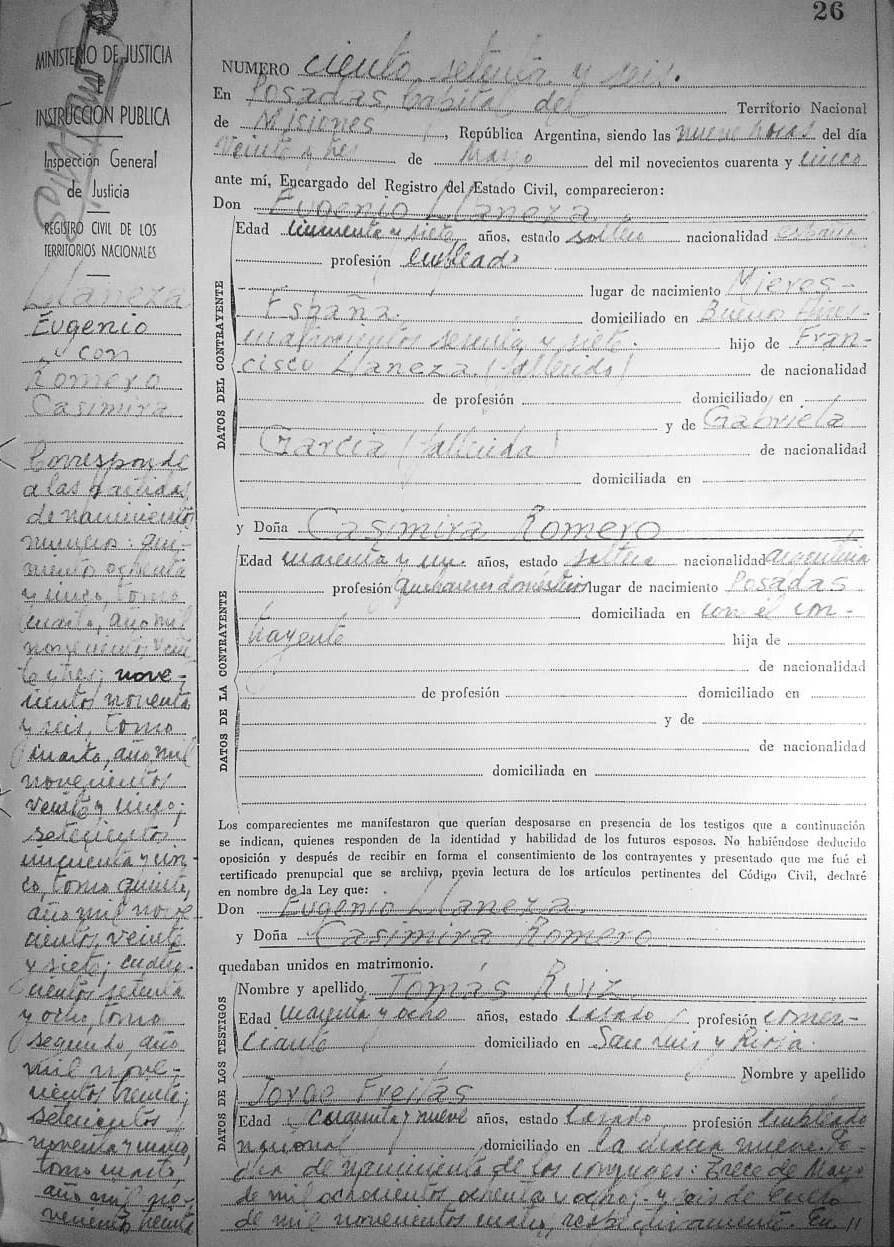 26
MINISTERIO DE JUSTICIA
E
INSTRUCCION PUBLICA
Inspección General
de Justicia
REGISTRO CIVIL DE LOS
TERRITORIOS NACIONALES
Llaneza
Eugenio
con
Romero
Casimira
Corresponde
a las partidas
de nacimiento
numeros: qui-
nientos ochenta
y cinco, tomo
cuarto, año mil
novecientos vein
te tres; nove-
cientos noventa
y seis, tomo
cuarto, año mil
novecientos
veinte y cinco;
setecientos
cincuenta y cin-
co, tomo quinto,
año mil nove-
cientos veinte
y siete; cuatro-
cientos setenta
y ocho, tomo
segundo, año
mil nove-
cientos treinta;
setecientos
noventa y cuatro,
tomo cuarto,
año mil no-
vecientos treinta
NUMERO ciento setenta y seis.
En Posadas Capital del Territorio Nacional
de Misiones, República Argentina, siendo las nueve horas del día
veinte y tres de Marzo del mil novecientos cuarenta y cinco
ante mí, Encargado del Registro del Estado Civil, comparecieron:
Don Eugenio Llaneza
DATOS DEL CONTRAYENTE
Edad cincuenta y siete años, estado soltero nacionalidad español
profesión empleado
lugar de nacimiento Mieres-
España. domiciliado en Buenos Aires-
cuatrocientos setenta y siete. hijo de Fran-
cisco Llaneza (fallecido) de nacionalidad
de profesión domiciliado en
y de Gabriela
García (fallecida) de nacionalidad
domiciliada en
y Doña Casimira Romero
DATOS DE LA CONTRAYENTE
Edad cuarenta y un años, estado soltera nacionalidad argentina
profesión quehaceres domésticos lugar de nacimiento Posadas
domiciliada en con el con-
trayente hija de
de nacionalidad
de profesión domiciliado en
y de
de nacionalidad
domiciliada en
Los comparecientes me manifestaron que querían desposarse en presencia de los testigos que a continuación
se indican, quienes responden de la identidad y habilidad de los futuros esposos. No habiéndose deducido
oposición y después de recibir en forma el consentimiento de los contrayentes y presentado que me fué el
certificado prenupcial que se archiva, previa lectura de los artículos pertinentes del Código Civil, declaré
en nombre de la Ley que:
Don Eugenio Llaneza
y Doña Casimira Romero
quedaban unidos en matrimonio.
DATOS DE LOS TESTIGOS
Nombre y apellido Tomás Ruiz
Edad cuarenta y ocho años, estado casado profesión comer-
ciante domiciliado en San Luis y Rioja.
Nombre y apellido
Jorge Freitas
Edad cincuenta y nueve años, estado casado profesión empleado
nacional domiciliado en la chacra nueve. Fe-
cha de nacimiento de los conyuges: Trece de Mayo
de mil ochocientos ochenta y ocho; y seis de Enero
de mil novecientos cuatro, respectivamente. En